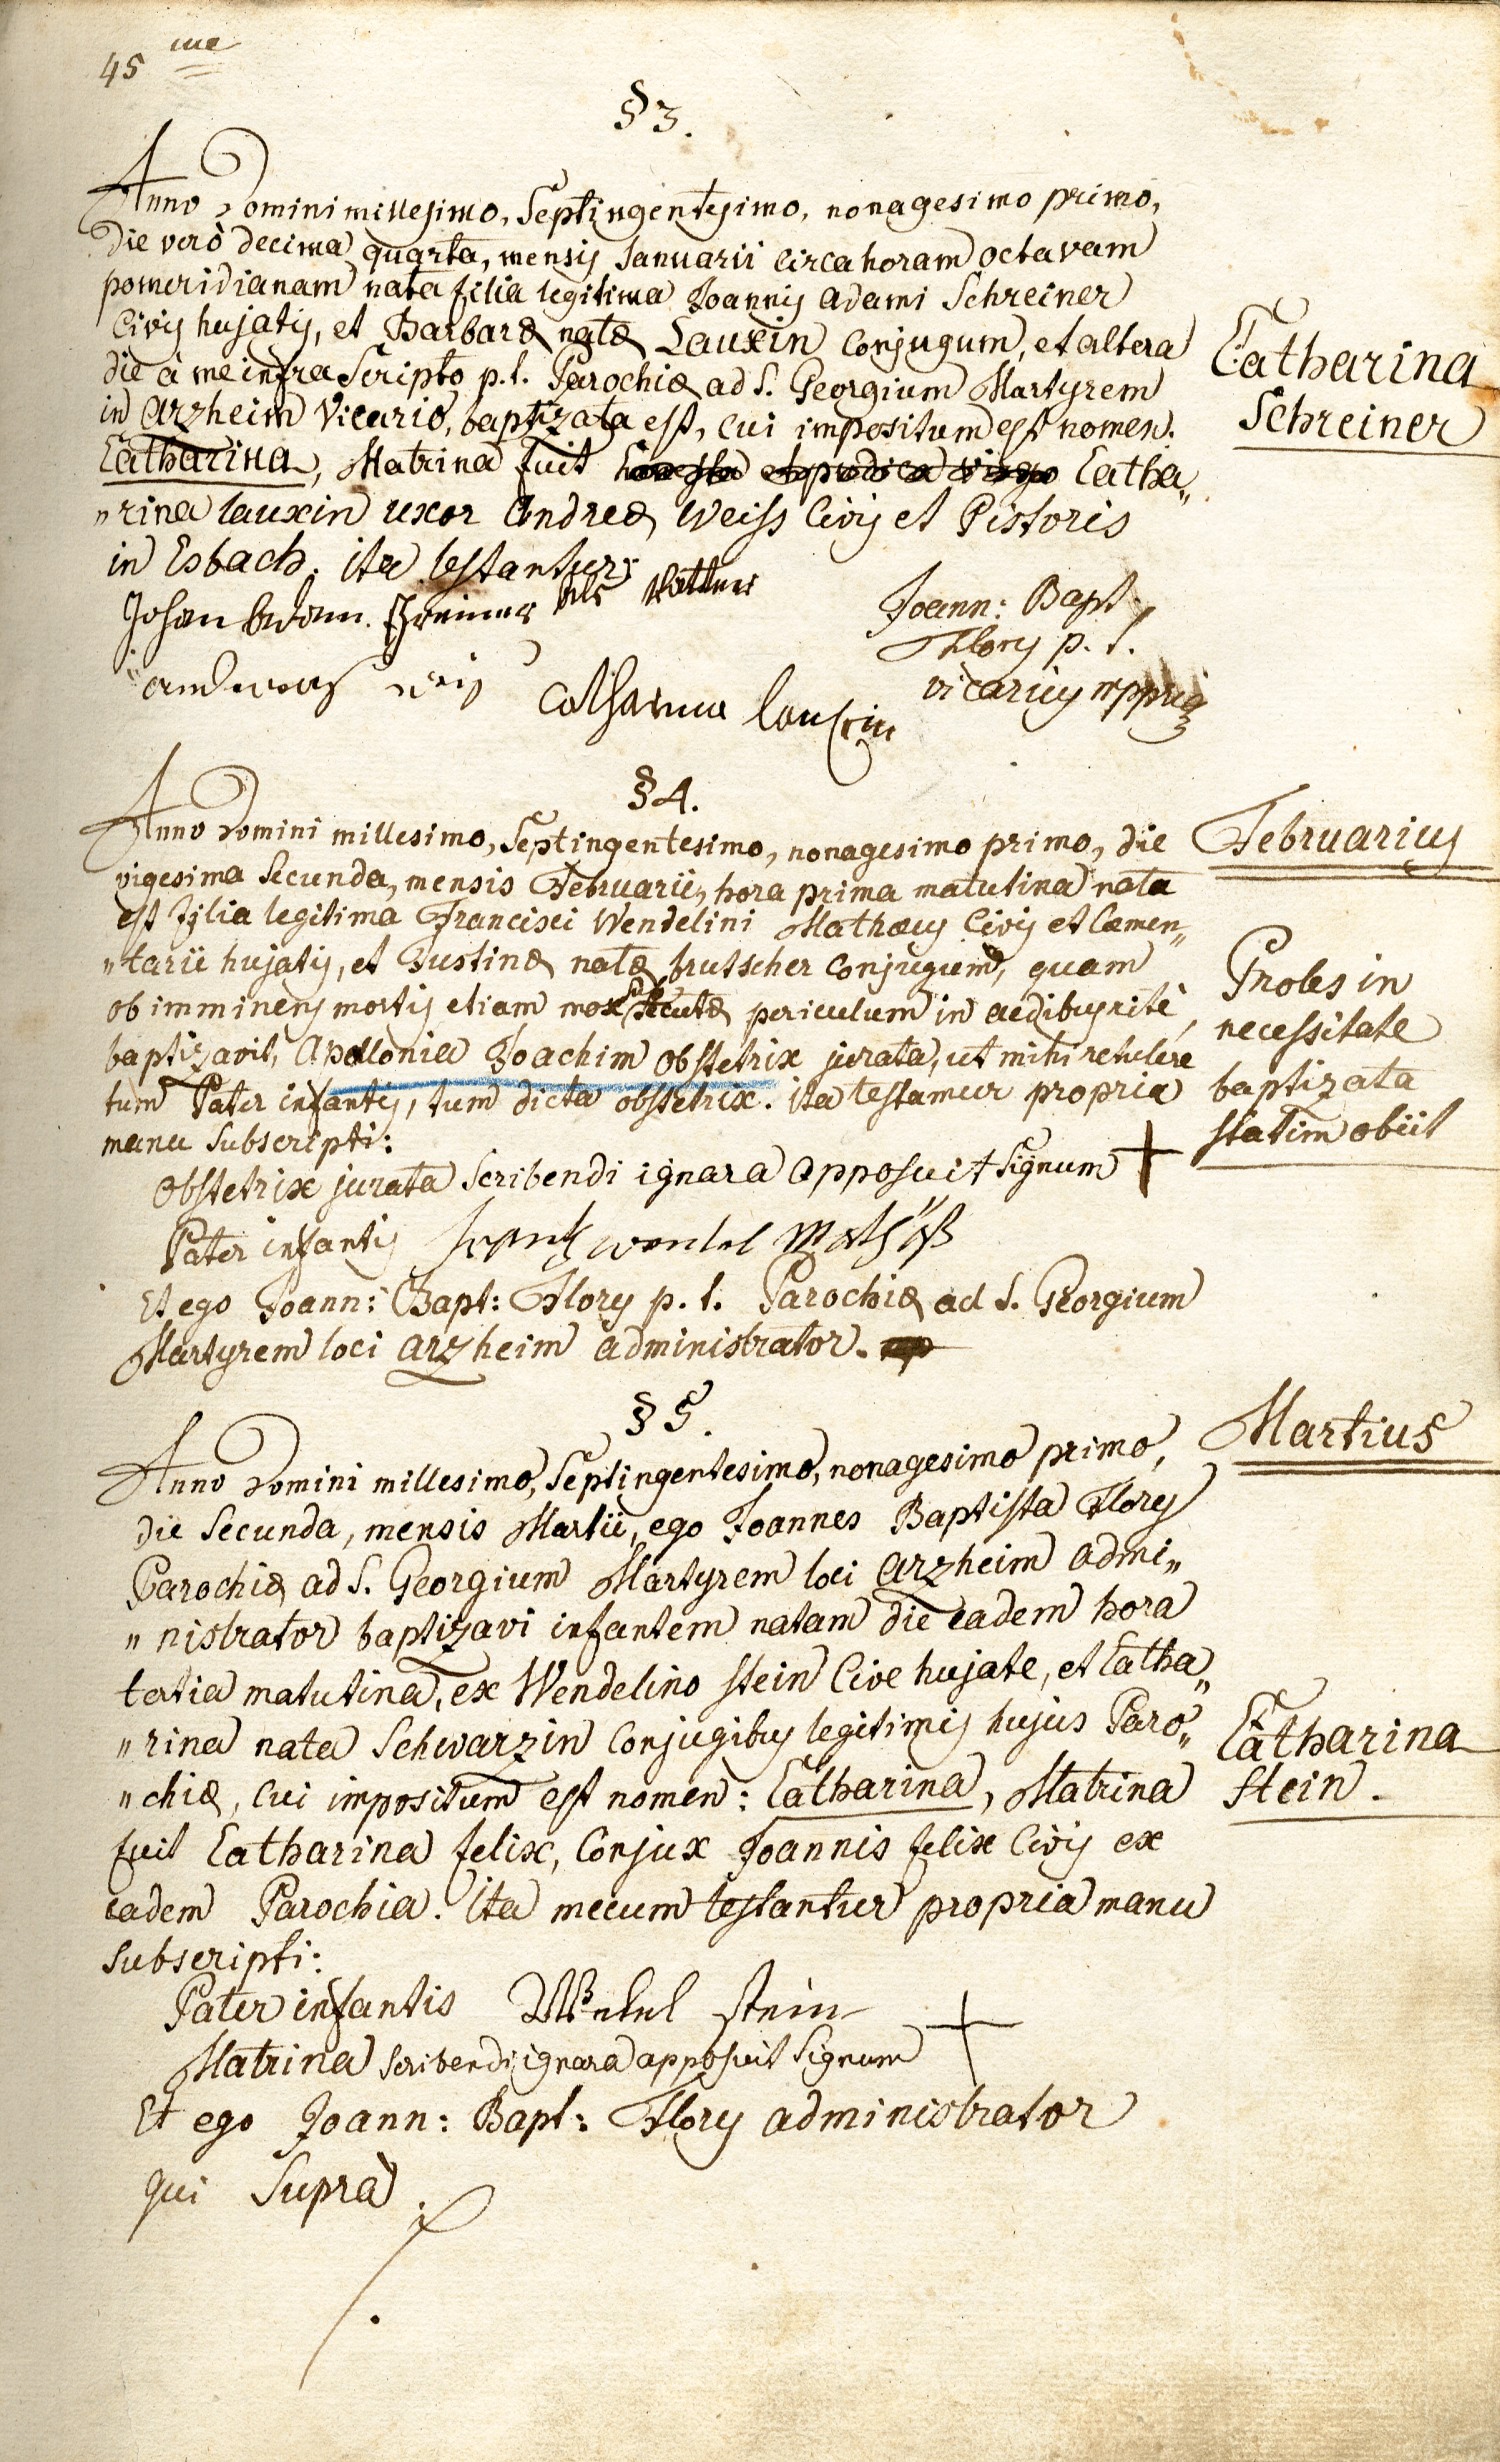 45 me
§ 3.
Anno Domini millesimo, Septingentesimo, nonagesimo primo,
die verò decima quarta, mensis Januarii circa horam octavam
pomeridianam nata filia legitima Joannis Adami Schreiner
Civis hujatis, et Barbaræ natæ Lauxin conjugum, et altera
die à me infra Scripto p. t. Parochiæ ad S. Georgium Martyrem
in Arzheim Vicario, baptizata est, cui impositum est nomen.
Catharina, Matrina fuit honesta et pudica virgo Catha„
„rina lauxin uxor Andreæ Weiss Civis et Pistoris
in Esbach. ita testantur:
Johan Adam Schreiner als Vatter
Joann: Bapt.
Flory p. t.
vicarius mppria
andreas weis
Catharina Lauxin
Catharina
Schreiner
§ 4.
Anno Domini millesimo, Septingentesimo, nonagesimo primo, die
vigesima Secunda, mensis Februarii, hora prima matutina nata
est filia legitima Francisci Wendelini Mathæus Civis et Cæmen„
„tarii hujatis, et Justinæ natæ brutscher conjugum, quam
ob imminens mortis etiam mox Secutæ periculum in aedibus ritè
baptizavit, Apollonia Joachim obstetrix jurata, ut mihi retulere
tum Pater infantis, tum dicta obstetrix. ita testamur propria
manu Subscripti:
Obstetrix jurata Scribendi ignara apposuit Signum +
Pater infantis frantz wendel Mathäß
Et ego Joann: Bapt: Flory p. t. Parochiæ ad S. Georgium
Martyrem loci Arzheim administrator.
Februarius
Proles in
necessitate
baptizata
statim obiit
§ 5.
Anno Domini millesimo, Septingentesimo, nonagesimo primo,
die Secunda, mensis Martii, ego Joannes Baptista Flory
Parochiæ ad S. Georgium Martyrem loci Arzheim admi„
„nistrator baptizavi infantem natam die eadem hora
tertia matutina, ex Wendelino Stein Cive hujate, et Catha„
„rina nata Schwarzin conjugibus legitimis hujus Paro„
„chiæ, cui impositum est nomen: Catharina, Matrina
fuit Catharina felix, Conjux Joannis felix Civis ex
eadem Parochia. Ita mecum testantur propria manu
Subscripti:
Pater infantis Wendel stein
Matrina Scribendi ignara apposuit Signum +
Et ego Joann: Bapt: Flory administrator
qui Suprà.
Martius
Catharina
Stein.